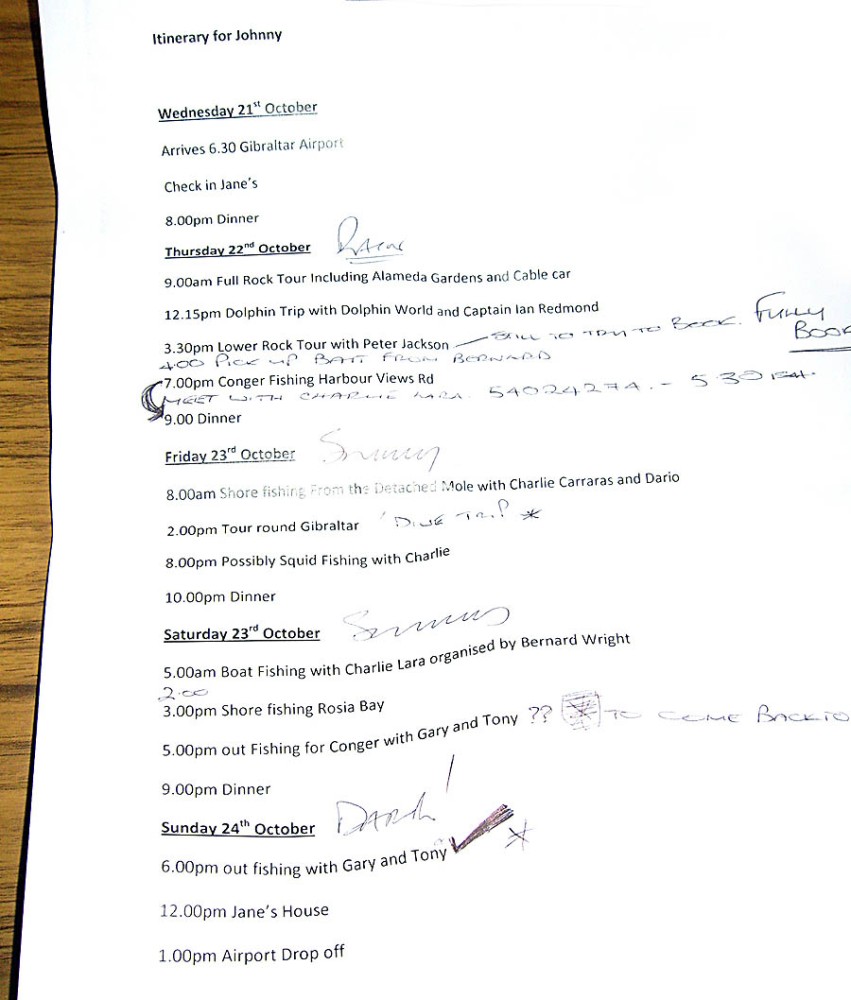 Itinerary for Johnny
Wednesday 21st October
Arrives 6.30 Gibraltar Airport
Check in Jane's
8.00pm Dinner
Thursday 22nd October
9.00am Full Rock Tour Including Alameda Gardens and Cable car
12.15pm Dolphin Trip with Dolphin World and Captain Ian Redmond
3.30pm Lower Rock Tour with Peter Jackson – STILL TO TRY TO BOOK. FULLY BOOK
400 PICK UP BAIT FROM BERNARD
7.00pm Conger Fishing Harbour Views Rd
MEET WITH CHARLIE LARA. 54024274. – 530
9.00 Dinner
Friday 23rd October Sunny
8.00am Shore fishing From the Detached Mole with Charlie Carraras and Dario
2.00pm Tour round Gibraltar 'DIVE TRIP *
8.00pm Possibly Squid Fishing with Charlie
10.00pm Dinner
Saturday 23rd October Sunny
5.00am Boat Fishing with Charlie Lara organised by Bernard Wright
2.00
3.00pm Shore fishing Rosia Bay
5.00pm out Fishing for Conger with Gary and Tony ?? TO COME BACK TO
9.00pm Dinner
Sunday 24th October
6.00pm out fishing with Gary and Tony ✓ *
12.00pm Jane's House
1.00pm Airport Drop off